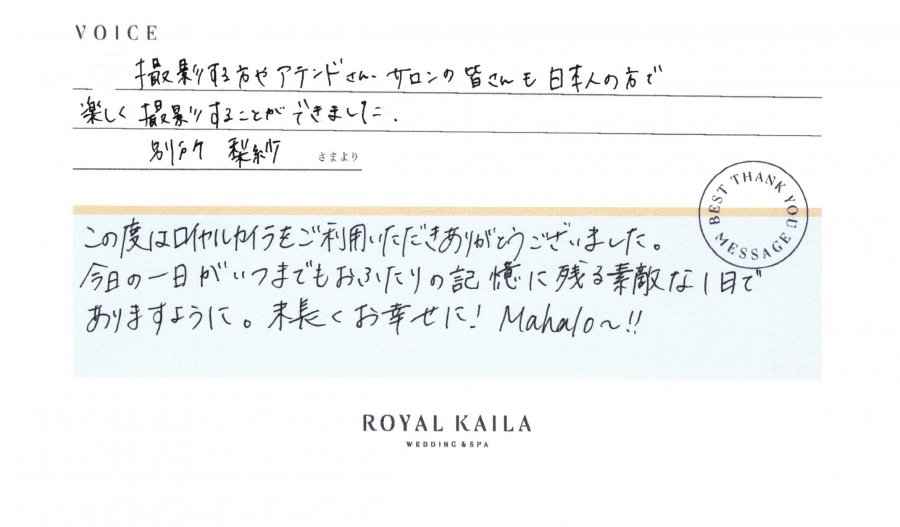 VOICE
撮影する方やアテンドさん、サロンの皆さんも日本人の方で
楽しく撮影することができました.
別所 梨紗 さまより
BEST THANK YOU MESSAGE
この度はロイヤルカイラをご利用いただきありがとうございました。
今日の一日がいつまでもおふたりの記憶に残る素敵な1日で
ありますように。末長くお幸せに! Mahalo~!!
ROYAL KAILA
WEDDING & SPA